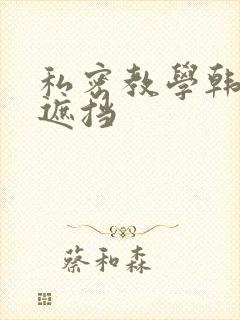 私密教學韩
遮挡
蔡和森